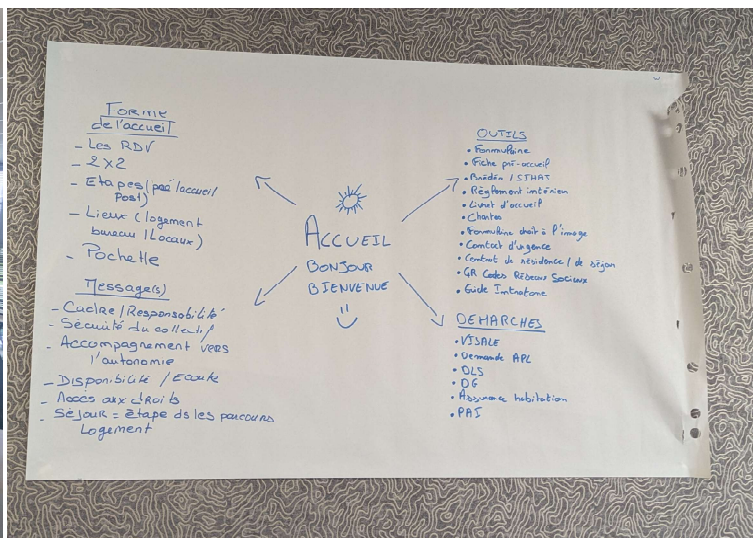 Forme
de l'accueil
- Les RDV
- 2 x 2
- Etapes (pré/accueil
Post)
- Lieux (logement
bureau / Locaux)
- Pochette
Message(s)
- Cadre / Responsabilité
- Sécurité du collectif
- Accompagnement vers
l'autonomie
- Disponibilité / Ecoute
- Accès aux droits
- Séjour = étape ds les parcours
Logement
ACCUEIL
BONJOUR
BIENVENUE
OUTILS
• Formulaire
• Fiche pré-accueil
• / SIHAT
• Règlement intérieur
• Livret d'accueil
• Chartes
• Formulaire droit à l'image
• Contact d'urgence
• Contrat de résidence / de séjour
• QR Codes Réseaux Sociaux
• Guide
DEMARCHES
• VISALE
• Demande APL
• DLS
• DG
• Assurance habitation
• PAI